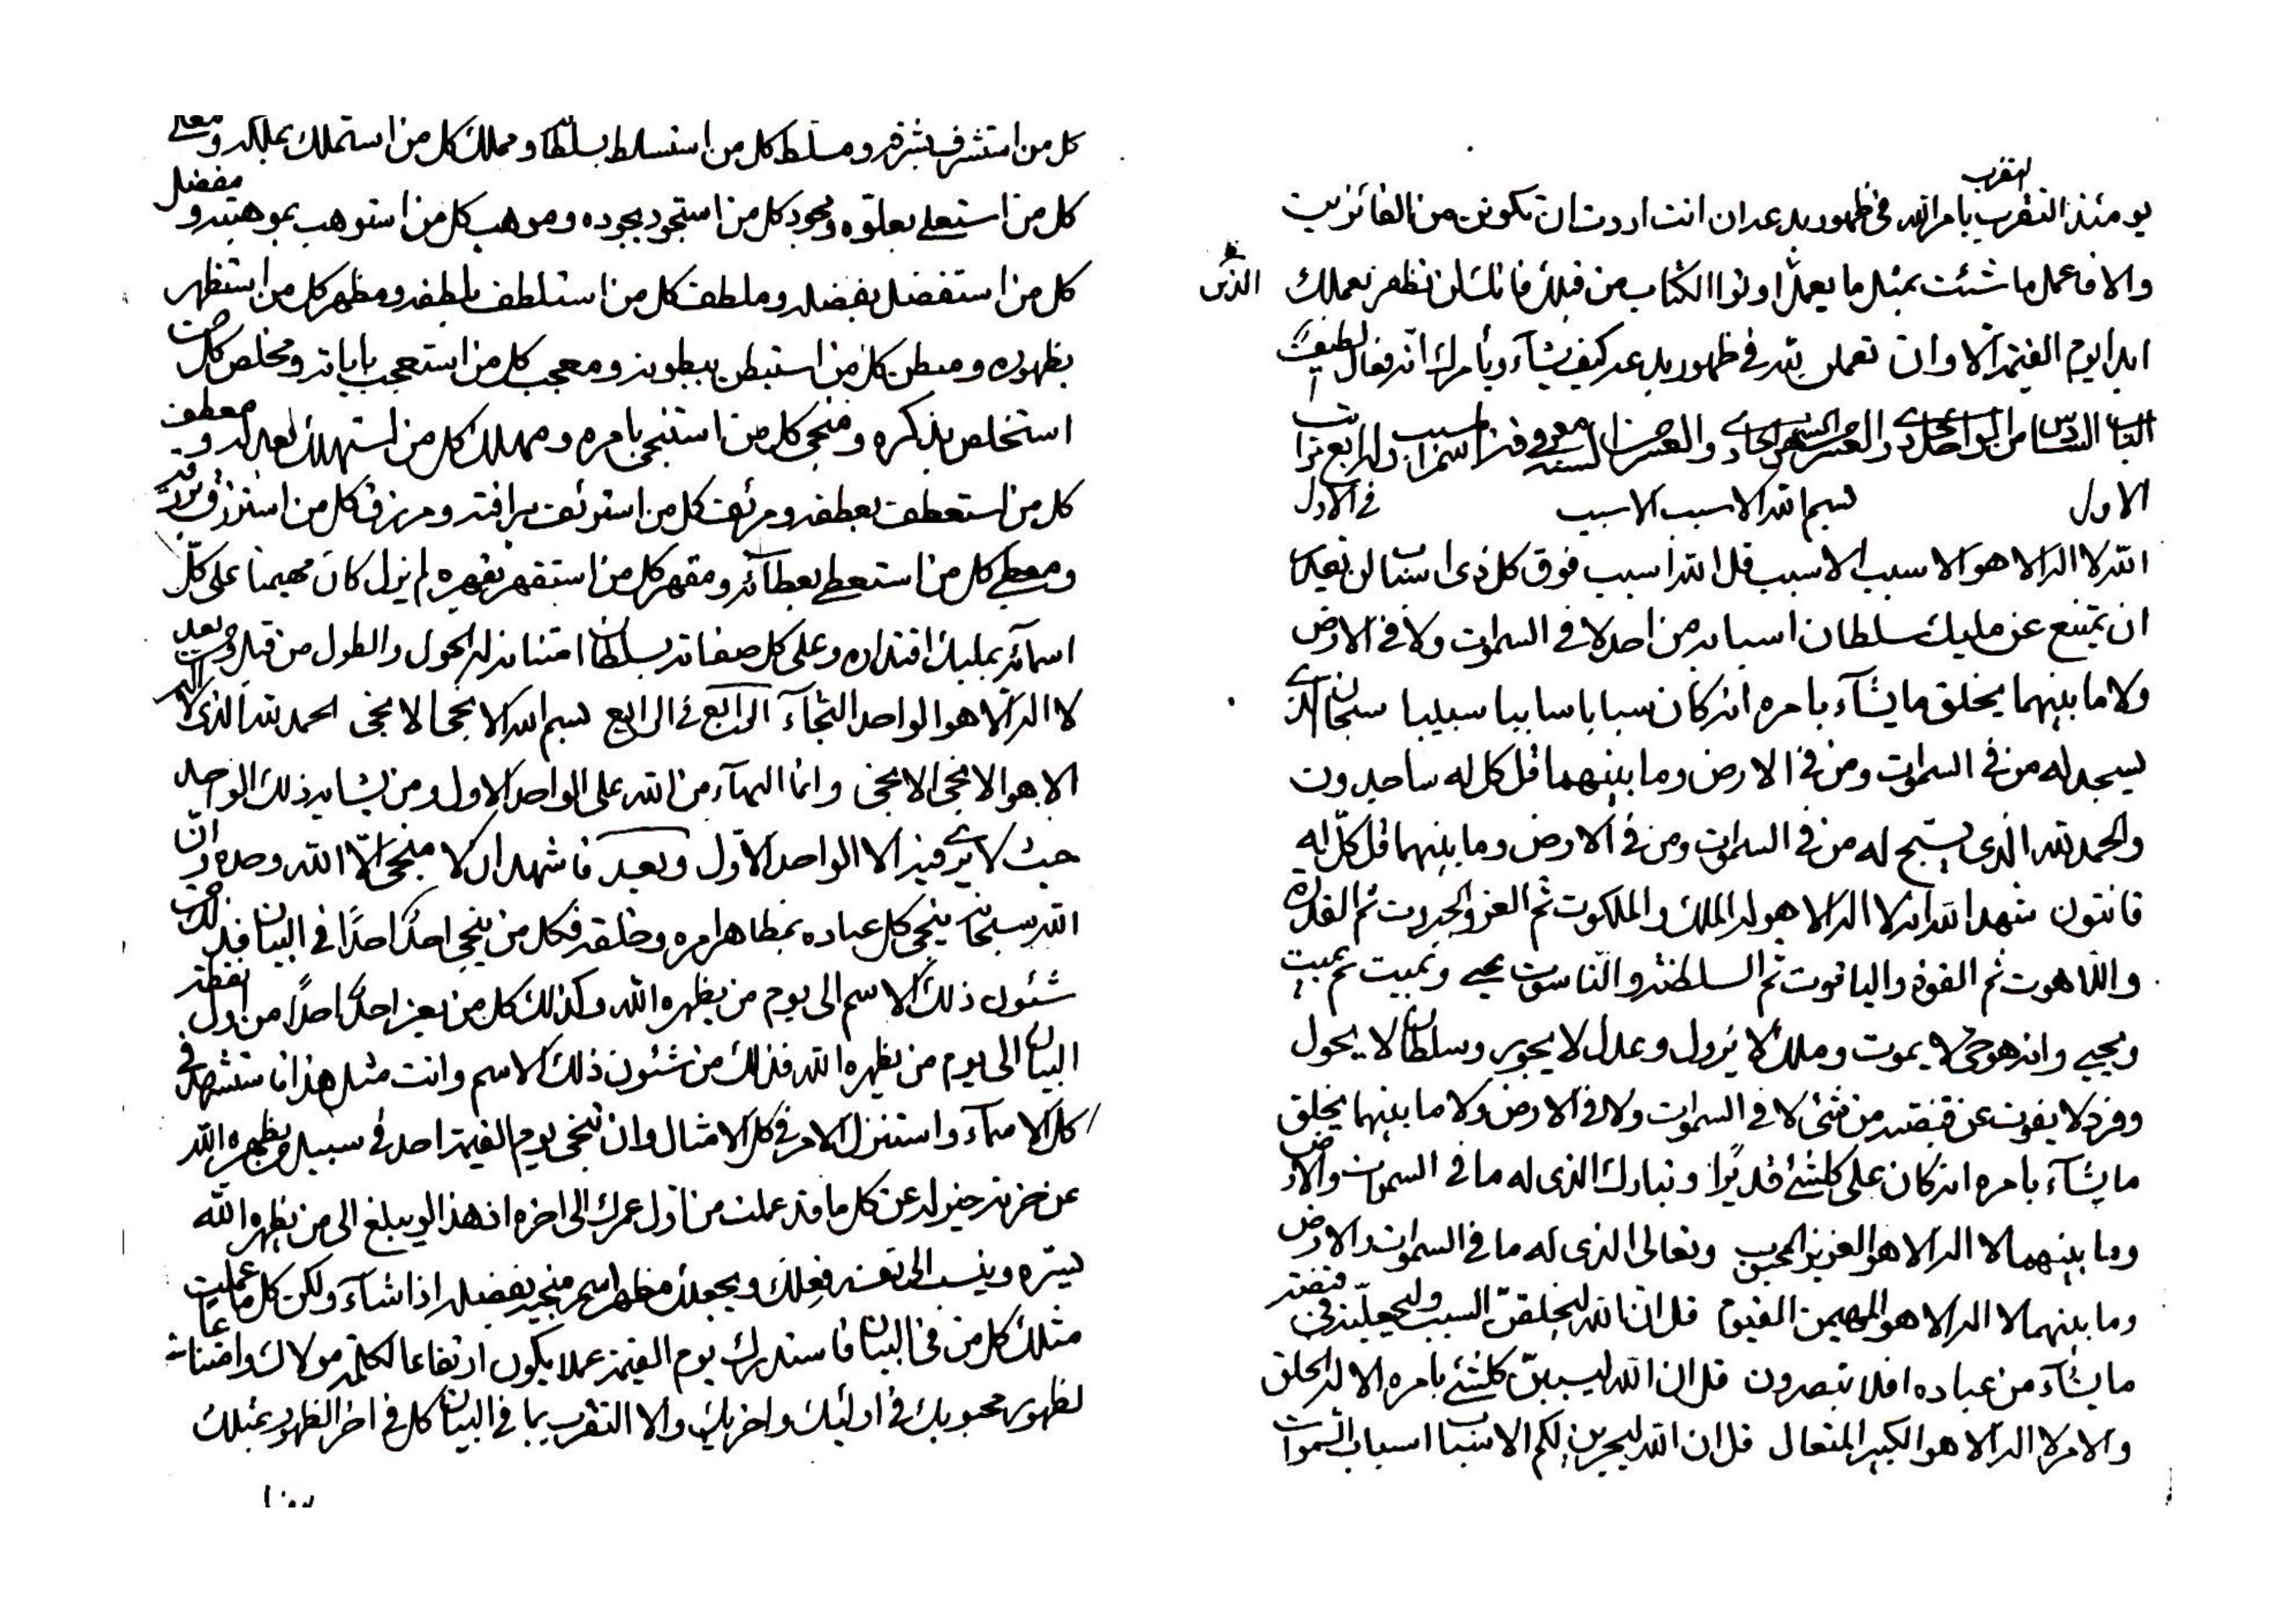 لتقرب
يومئذ التقرب بامر الله فى ظهور بدعه ان انت اردت ان تكونن من الفائزين
والا فاعمل ما شئت بمثل ما يعمل اوتوا الكتاب من قبلك فانك لن تظفر بعملك الذين
ابدا يوم القيمة الا وان تعملن لله فى ظهور بدعه كيف يشآء ويأمرك انه فعال لطيف
الباب السادس من الواحد الحادى والعشر من الشهر الحادى والعشر من السنة فى معرفة اسم اسبب وله اربع مراتب
الاول بسم الله الاسبب الاسبب فى الاول
الله لا اله الا هو الاسبب الاسبب قل الله اسبب فوق كل ذى اسباب لن يقدر
ان يمتنع عن مليك سلطان اسبابه من احد لا فى السموات ولا فى الارض
ولا ما بينهما يخلق ما يشآء بامره انه كان سبابا سابيا سبيبا سبحان الذى
يسجد له من فى السموات ومن فى الارض وما بينهما قل كل له ساجدون
والحمد لله الذى يسبح له من فى السموات ومن فى الارض وما بينهما قل كل له
قانتون شهد الله انه لا اله الا هو له الملك والملكوت ثم العز والجبروت ثم القدرة
واللاهوت ثم القوة والياقوت ثم السلطنة والناسوت يحيى ويميت ثم يميت
ويحيى وانه هو حى لا يموت وملك لا يزول وعدل لا يجور وسلطان لا يحول
وفرد لا يفوت عن قبضته من شئ لا فى السموات ولا فى الارض ولا ما بينهما يخلق
ما يشآء بامره انه كان على كلشئ قديرا وتبارك الذى له ما فى السموات والارض
وما بينهما لا اله الا هو العزيز المحبوب وتعالى الذى له ما فى السموات والارض
وما بينهما لا اله الا هو المهيمن القيوم قل ان الله ليخلقن السبب وليجعلنه فى قبضته
ما يشآء من عباده افلا تبصرون قل ان الله ليسببن كلشئ بامره الا له الخلق
والامر لا اله الا هو الكبير المتعال قل ان الله ليجرين لكم الاسباب اسباب السموات
كل من استشرف بشرفه ومسلط كل من استسلط بسلطانه ومملك كل من استملك بملكه ومعلى
كل من استعلى بعلوه ومجود كل من استجود بجوده وموهب كل من استوهب بموهبته ومفضل
كل من استفضل بفضله وملطف كل من استلطف بلطفه ومظهر كل من استظهر
بظهوره ومبطن كل من استبطن ببطونه ومعجب كل من استعجب باياته ومخلص كل من
استخلص بذكره ومنجى كل من استنجى بامره ومهلك كل من استهلك بعدله ومعطف
كل من استعطف بعطفه ومرئف كل من استرئف برافته ومرزق كل من استرزق برزقه
ومعطى كل من استعطى بعطآئه ومقهر كل من استقهر بقهره لم يزل كان مهيمنا على كل
اسمآئه بمليك اقتداره وعلى كل صفاته بسلطان امتناعه له الحول والطول من قبل ومن بعد
لا اله الا هو الواحد النجآء الرابع فى الرابع بسم الله الانجى الانجى الحمد لله الذى لا اله
الا هو الانجى الانجى وانما البهآء من الله على الواحد الاول ومن يشابه ذلك الواحد
حيث لا يرى فيه الا الواحد الاول وبعد فاشهد ان لا منجى الا الله وحده وان
الله سبحانه ينجى كل عباده بمظاهر امره وخلقه فكل من ينجى احدا احدا فى البيان فذلك من
شئون ذلك الاسم الى يوم من يظهره الله وكذلك كل من يعز احدا احدا من اول نقطة
البيان الى يوم من يظهره الله فذلك من شئون ذلك الاسم وانت مثل هذا فاستشهد فى
كل الاسمآء واستنزل الامر فى كل الامثال وان تنجى يوم القيمة احد فى سبيل من يظهره الله
عن حزنه خير له عن كل ما قد عملت من اول عمرك الى اخره اذ هذا لو يبلغ الى من يظهره الله
يستره وينسب الى نفسه فعلك ويجعلك مظهر اسم منجيه بفضله اذا شآء ولكن كل ما عملت
مثلك كل من فى البيان فاستدرك يوم القيمة عملا يكون ارتفاعا لكلمة مولاك وامتناعا
لظهور محبوبك فى اولئك واخريك والا التقرب بما فى البيان كل فى اخر الظهور بمثلك
يومئذ